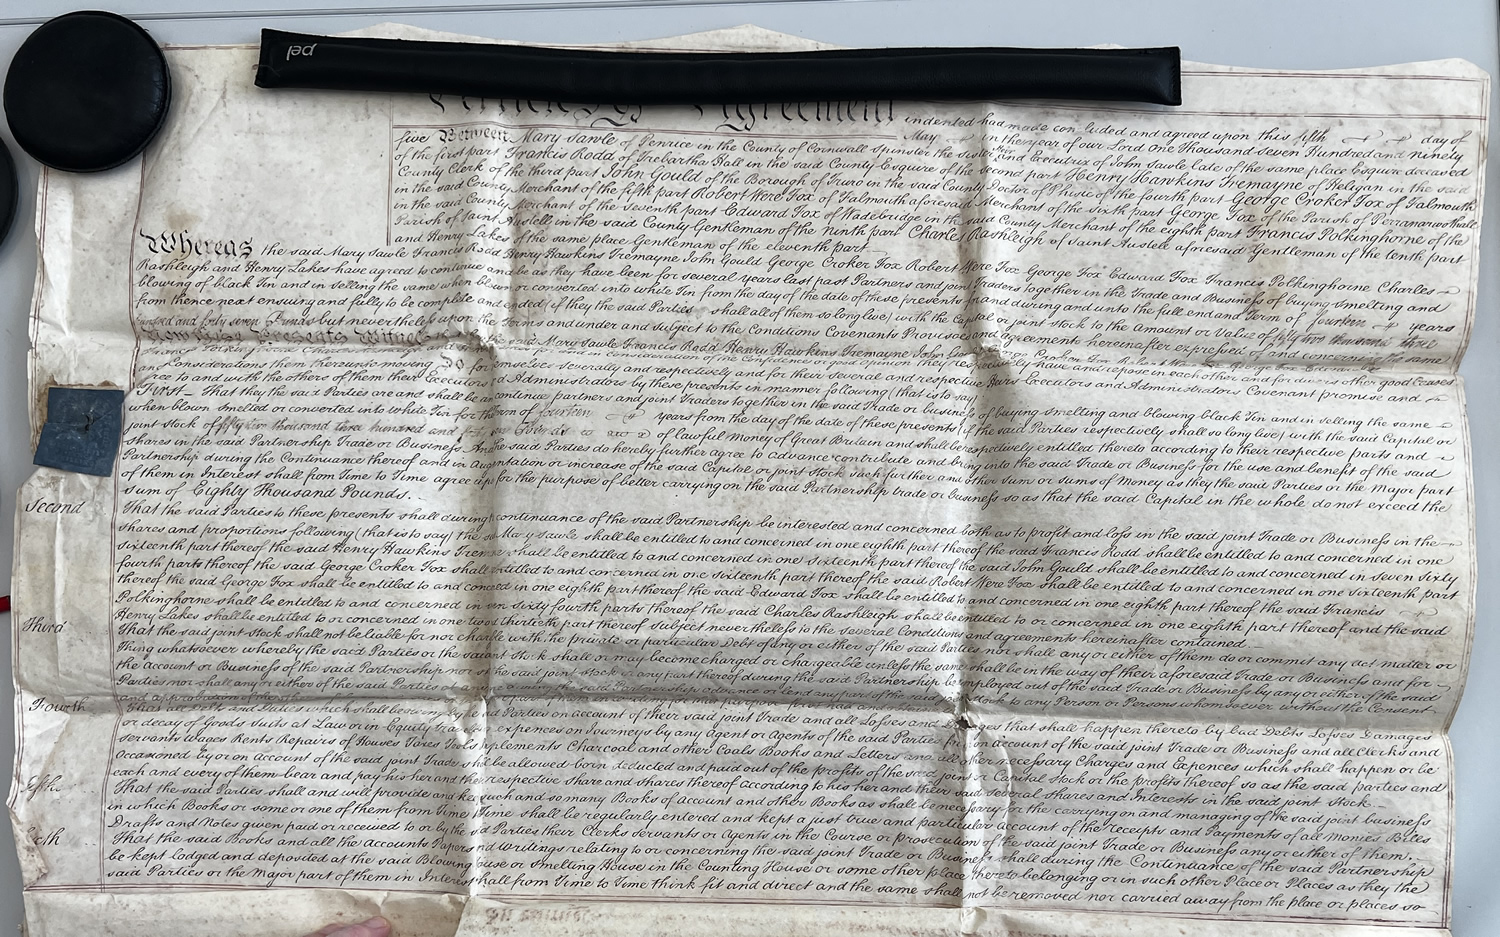 pel
Agreement indented had made concluded and agreed upon this fifth day of
May in the year of our Lord one Thousand seven Hundred and ninety
five Between Mary Sawle of Penrice in the County of Cornwall Spinster the sister and Executrix of John Sawle late of the same place Esquire deceased
of the first part Francis Rodd of Trebartha Hall in the said County Esquire of the second part Henry Hawkins Tremayne of Heligan in the said
County Clerk of the third part John Gould of the Borough of Truro in the said County Doctor of Physic of the fourth part George Croker Fox of Falmouth
in the said County Merchant of the fifth part Robert Were Fox of Falmouth aforesaid Merchant of the sixth part George Fox of the Parish of Perranarwothall
in the said County Merchant of the seventh part Edward Fox of Wadebridge in the said County Merchant of the eighth part Francis Polkinghorne of the
Parish of Saint Austell in the said County Gentleman of the ninth part Charles Rashleigh of Saint Austell aforesaid Gentleman of the tenth part
and Henry Lakes of the same place Gentleman of the eleventh part
Whereas the said Mary Sawle Francis Rodd Henry Hawkins Tremayne John Gould George Croker Fox Robert Were Fox George Fox Edward Fox Francis Polkinghorne Charles
Rashleigh and Henry Lakes have agreed to continue and be as they have been for several years last past Partners and joint Traders together in the Trade and Business of buying smelting and
blowing of black Tin and in selling the same when blown or converted into white Tin from the day of the date of these presents for and during and unto the full end and Term of fourteen years
from thence next ensuing and fully to be complete and ended (if they the said Parties shall all of them so long live) with the Capital or joint stock to the Amount or Value of fifty two thousand three
hundred and forty seven Pounds but nevertheless upon the Terms and under and subject to the Conditions Covenants Provisoes and agreements hereinafter expressed of and concerning the same
Now these Presents Witness the said Mary Sawle Francis Rodd Henry Hawkins Tremayne John George Croker Fox Fox Edward
Francis Polkinghorne Charles Rashleigh and for and in consideration of the Confidence or good opinion they respectively have and repose in each other and for divers other good Causes
and Considerations them thereunto moving Do for themselves severally and respectively and for their several and respective Heirs Executors and Administrators Covenant promise and
agree to and with the others of them their Executors and Administrators by these presents in manner following (that is to say)
First That they the said Parties are and shall be and continue partners and joint Traders together in the Trade or business of buying smelting and blowing black Tin and in selling the same
when blown smelted or converted into white Tin for the term of fourteen years from the day of the date of these presents (if the said Parties respectively shall so long live) with the said Capital or
joint stock of fifty two thousand three hundred and of lawful money of Great Britain and shall be respectively entitled thereto according to their respective parts and
shares in the said Partnership Trade or Business And the said Parties do hereby further agree to advance contribute and bring into the said Trade or Business for the use and benefit of the said
Partnership during the Continuance thereof and in augmentation or increase of the said Capital or joint stock such further and other sum or sums of Money as they the said Parties or the Major part
of them in Interest shall from Time to Time agree upon for the purpose of better carrying on the said Partnership trade or business so as that the said Capital in the whole do not exceed the
sum of Eighty Thousand Pounds.
Second That the said Parties to these presents shall during continuance of the said Partnership be interested and concerned both as to profit and loss in the said joint Trade or Business in the
shares and proportions following (that is to say) the said Mary Sawle shall be entitled to and concerned in one eighth part thereof the said Francis Rodd shall be entitled to and concerned in one
sixteenth part thereof the said Henry Hawkins Tremayne shall be entitled to and concerned in one sixteenth part thereof the said John Gould shall be entitled to and concerned in seven sixty
fourth parts thereof the said George Croker Fox shall entitled to and concerned in one sixteenth part thereof the said Robert Were Fox shall be entitled to and concerned in one sixteenth part
thereof the said George Fox shall be entitled to and concerned in one eighth part thereof the said Edward Fox shall be entitled to and concerned in one eighth part thereof the said Francis
Polkinghorne shall be entitled to and concerned in sixty fourth parts thereof the said Charles Rashleigh shall be entitled to or concerned in one eighth part thereof and the said
Henry Lakes shall be entitled to or concerned in one two & thirtieth part thereof subject nevertheless to the several Conditions and agreements hereinafter contained.
Third That the said joint stock shall not be liable for nor chargeable with the private or particular Debt of any or either of the said Parties nor shall any or either of them do or commit any act matter or
Thing whatsoever whereby the said Parties or the said joint Stock shall or may become charged or chargeable unless the same shall be in the way of their aforesaid Trade or Business and for
the account or Business of the said Partnership nor the said joint stock or any part thereof during the said Partnership be employed out of the said Trade or Business by any or either of the said
Parties nor shall any or either of the said Parties during the said Partnership advance or lend any part of the said joint Stock to any Person or Persons whomsoever without the Consent
and approbation of the
Fourth That all Debts and Duties which shall be owing by the said Parties on account of their said joint Trade and all Losses and that shall happen thereto by bad Debts Losses Damages
or decay of Goods Suits at Law or in Equity expences on Journeys by any Agent or Agents of the said Parties for on account of the said joint Trade or Business and all Clerks and
servants wages Rents Repairs of Houses Taxes Tools Implements Charcoal and other Coals Books and Letters and all other necessary Charges and Expences which shall happen or be
Occasioned by or on Account of the said joint Trade shall be allowed born deducted and paid out of the profits of the said joint or Capital Stock or the profits thereof so as the said parties and
each and every of them bear and pay his her and their respective share and shares thereof according to his her and their said several shares and Interests in the said joint stock.
Fifth That the said Parties shall and will provide and keep such and so many Books of Account and other Books as shall be necessary for the carrying on and managing of the said joint business
in which Books or some or one of them from Time to Time shall be regularly entered and kept a just true and particular account of the receipts and Payments of all Monies Bills
Drafts and Notes given paid or received to or by the said Parties their Clerks servants or Agents in the Course or prosecution of the said joint Trade or Business any or either of them.
Sixth That the said Books and all the Accounts Papers and writings relating to or concerning the said joint Trade or Business shall during the Continuance of the said Partnership
be kept Lodged and deposited at the said Blowing House or Smelting House in the Counting House or some other place thereto belonging or in such other Place or Places as they the
said Parties or the Major part of them in Interest shall from Time to Time think fit and direct and the same shall not be removed nor carried away from the place or places so